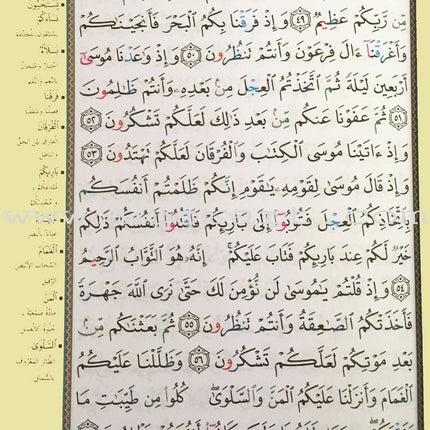 مِّن رَّبِّكُمْ عَظِيمٌ ﴿٤٩﴾ وَإِذْ فَرَقْنَا بِكُمُ ٱلْبَحْرَ فَأَنجَيْنَٰكُمْ
وَأَغْرَقْنَآ ءَالَ فِرْعَوْنَ وَأَنتُمْ تَنظُرُونَ ﴿٥٠﴾ وَإِذْ وَٰعَدْنَا مُوسَىٰٓ
أَرْبَعِينَ لَيْلَةً ثُمَّ ٱتَّخَذْتُمُ ٱلْعِجْلَ مِنۢ بَعْدِهِۦ وَأَنتُمْ ظَٰلِمُونَ
﴿٥١﴾ ثُمَّ عَفَوْنَا عَنكُم مِّنۢ بَعْدِ ذَٰلِكَ لَعَلَّكُمْ تَشْكُرُونَ ﴿٥٢﴾
وَإِذْ ءَاتَيْنَا مُوسَى ٱلْكِتَٰبَ وَٱلْفُرْقَانَ لَعَلَّكُمْ تَهْتَدُونَ ﴿٥٣﴾
وَإِذْ قَالَ مُوسَىٰ لِقَوْمِهِۦ يَٰقَوْمِ إِنَّكُمْ ظَلَمْتُمْ أَنفُسَكُم
بِٱتِّخَاذِكُمُ ٱلْعِجْلَ فَتُوبُوٓا۟ إِلَىٰ بَارِئِكُمْ فَٱقْتُلُوٓا۟ أَنفُسَكُمْ ذَٰلِكُمْ
خَيْرٌ لَّكُمْ عِندَ بَارِئِكُمْ فَتَابَ عَلَيْكُمْ ۚ إِنَّهُۥ هُوَ ٱلتَّوَّابُ ٱلرَّحِيمُ
﴿٥٤﴾ وَإِذْ قُلْتُمْ يَٰمُوسَىٰ لَن نُّؤْمِنَ لَكَ حَتَّىٰ نَرَى ٱللَّهَ جَهْرَةً
فَأَخَذَتْكُمُ ٱلصَّٰعِقَةُ وَأَنتُمْ تَنظُرُونَ ﴿٥٥﴾ ثُمَّ بَعَثْنَٰكُم مِّنۢ
بَعْدِ مَوْتِكُمْ لَعَلَّكُمْ تَشْكُرُونَ ﴿٥٦﴾ وَظَلَّلْنَا عَلَيْكُمُ
ٱلْغَمَامَ وَأَنزَلْنَا عَلَيْكُمُ ٱلْمَنَّ وَٱلسَّلْوَىٰ ۖ كُلُوا۟ مِن طَيِّبَٰتِ مَا
نِسَاءَكُمْ
فَرَقْنَا
الْفُرْقَانَ
بَارِئِكُمْ
الْغَمَامَ
السحاب الأبيض
الرقيق
الْمَنَّ
السَّلْوَى
الطائر المعروف
بالسُّمانى